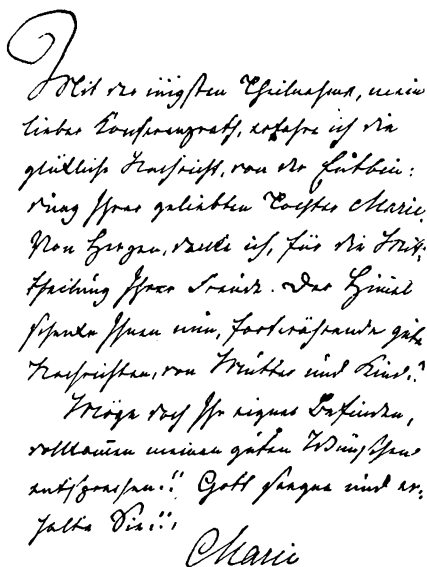 Mit der inigsten Theilnahme, mein
lieber Konferenzrath, erfahre ich die
glükliche Nachricht, von der Entbin:
dung Ihrer geliebten Tochter Marie.
Von Herzen, danke ich, für die Mit:
theilung Ihrer Freude. Der Himel
schenke Ihnen nun, fortwährende gute
Nachrichten, von Mutter und Kind.
Möge doch Ihr eignes Befinden,
vollkomen meinen guten Wünschen
entsprechen!! Gott seegne und er:
halte Sie!!
Marie